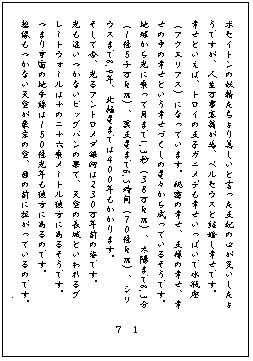 ポセイドンの妖精たちより美しいと言った王妃の心が災いしたよ
うですが、人生万事塞翁が馬、ペルセウスと結婚し幸せです。
幸せといえば、トロイの王子ガニメデも幸せいっぱいで水瓶座
（アクエリアス）になっています。織姫の幸せ、王様の幸せ、幸
せの中の幸せという幸せづくしの星々から成っているそうです。
地球から光に乗って月まで1.3秒（38万km）、太陽まで8.3分
（1億5千万km）、冥王星まで6.5時間（70億km）、シリ
ウスまで8.7年、北極星までは400年もかかります。
そして今、光るアンドロメダ銀河は230万年前の姿です。
光も追いつかないビッグバンの果て、天空の長城といわれるグ
レートウォールは十の二十六乗メートル彼方にあるそうです。
つまり宇宙の地平線は150億光年も彼方にあるのです。
想像もつかない天空が東京の空、目の前に拡がっているのです。
71